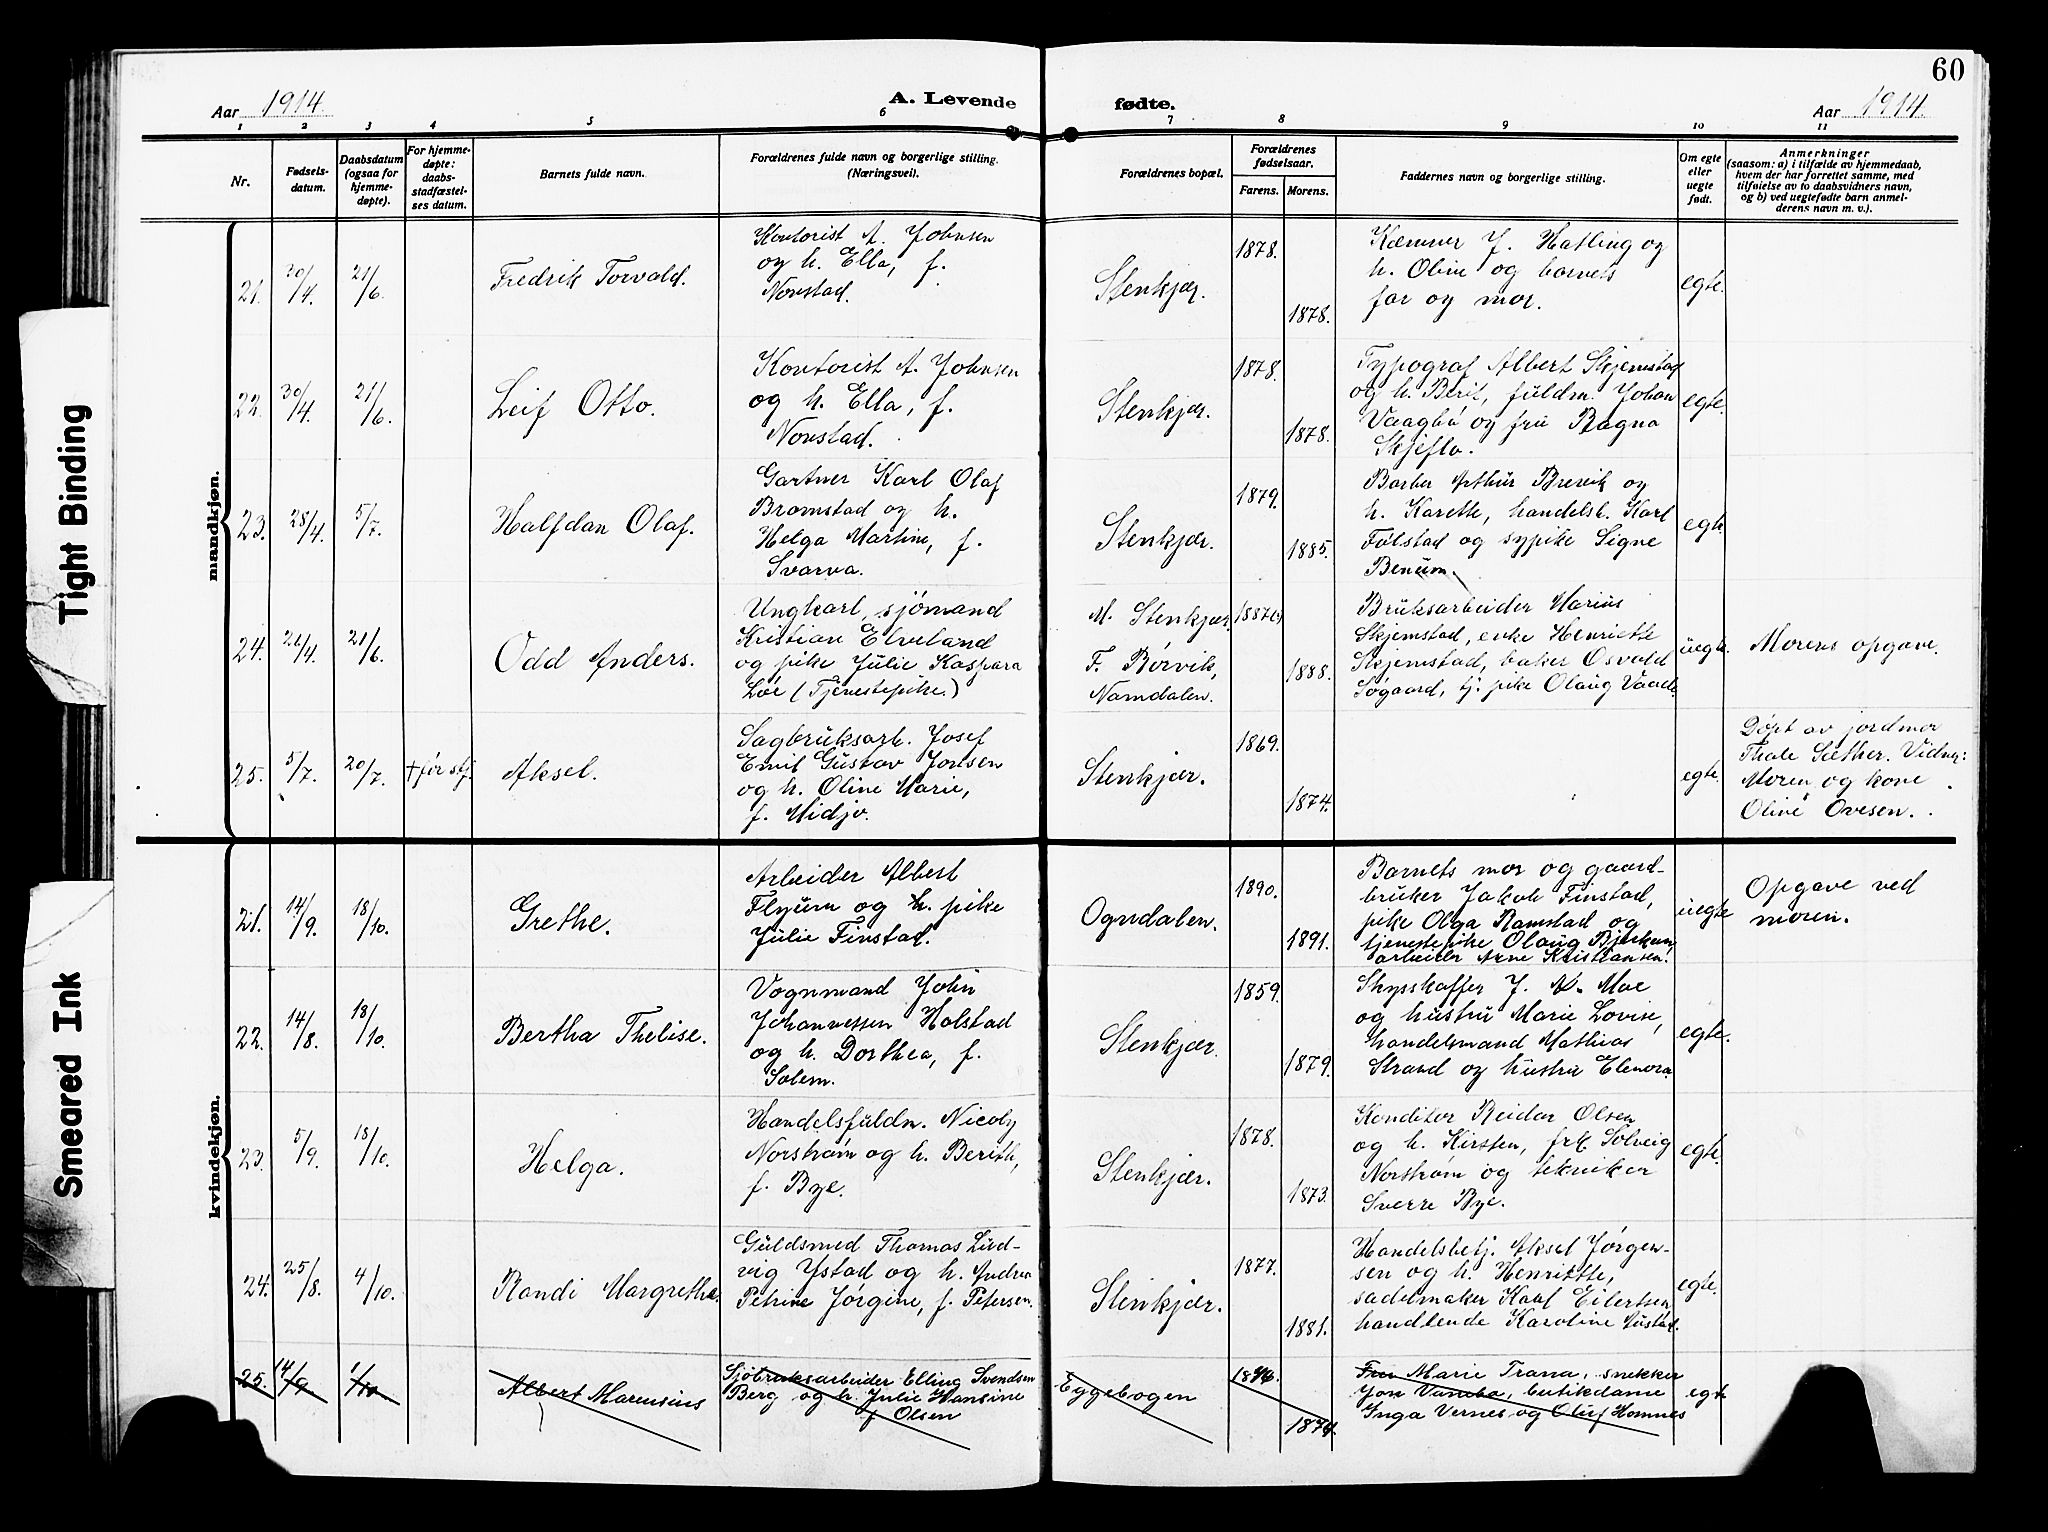 60
Aar 1914.
A. Levende
fødte.
Aar 1914.
1 2 3 4 5 6 7 8 9 10 11
Nr.
Fødsels-
datum.
Daabsdatum
(ogsaa for
hjemme-
døpte).
For hjemme-
døpte:
daabs-
stadfæstel-
ses datum.
Barnets fulde navn.
Forældrenes fulde navn og borgerlige stilling.
(Næringsvei).
Forældrenes bopæl.
Forældrenes
fødselsaar.
Farens. Morens.
Faddernes navn og borgerlige stilling.
Om egte
eller
uegte
født.
Anmerkninger
(saasom: a) i tilfælde av hjemmedaab,
hvem der har forrettet samme, med
tilføielse av to daabsvidners navn,
og b) ved uegtefødte barn anmel-
derens navn m. v.).
mandkjøn.
21.
30/4.
21/6.
Fredrik Torvald.
Kontorist A. Johnsen
og h. Ella, f.
Norstad.
Stenkjær.
1878.
1878.
Kæmner J. Hatling og
h. Oline og barnets
far og mor.
egte.
22.
30/4.
21/6.
Leif Otto.
Kontorist A. Johnsen
og h. Ella, f.
Norstad.
Stenkjær.
1878.
1878.
Typograf Albert Skjemstad
og h. Berit, fuldm. Johan
Vaagbö og fru Ragna
Skjeflo.
egte.
23.
28/4.
5/7.
Halfdan Olaf.
Gartner Karl Olaf
Bromstad og h.
Helga Martine, f.
Svarva.
Stenkjær.
1879.
1885.
Barber Arthur Brevik og
h. Karethe, handelsb. Karl
Følstad og sypike Signe
Benum.
egte.
24.
21/6.
Odd Anders.
Ungkarl, sjömand
Kristian Elveland
og pike Julie Kaspara
Löe (Tjenestepike.)
M. Stenkjær.
F. Rørvik,
Namdalen.
1888.
Bruksarbeider Marius
Skjemstad, enke Henriette
Skjemstad, baker Osvald
Søgaard, tj. pike Olaug Vaade.
uegte.
Morens opgave.
25.
5/7.
20/7.
† för stf.
Aksel.
Sagbruksarb. Josef
Emil Gustav Jonsen
og h. Oline Marie,
f. Midjo.
Stenkjær.
1869.
1874.
egte.
Döpt av jordmor
Thale Sæther. Vidner:
Moren og kone
Oline Ovesen.
kvindekjøn.
21.
14/9.
18/10.
Grethe.
Arbeider Albert
Flyum og pike
Julie Finstad.
Ogndalen.
1890.
1891.
Barnets mor og gaard-
bruker Jakob Finstad,
pike Olga Ramstad og
tjenestepike Olaug Bjerkem,
arbeider Arne Kristiansen.
uegte
Opgave ved
moren.
22.
14/8.
18/10.
Bertha Thelise.
Vognmand John
Johannessen Holstad
og h. Dorthea, f.
Solem.
Stenkjær.
1859.
1879.
Skysskaffer J. N. Moe
og hustru Marie Lovise,
handelsmand Mathias
Strand og hustru Elenora.
egte.
23.
5/9.
18/10.
Helga.
Handelsfuldm. Nicoly
Norstrøm og h. Berith,
f. Bye.
Stenkjær.
1878.
1873.
Konditor Reidar Olsen
og h. Kirsten, frk. Solveig
Norstrøm og tekniker
Sverre Bye.
egte.
24.
25/8.
4/10.
Randi Margrethe.
Guldsmed Thomas Lud-
vig Ystad og h. Andrea
Petrine Jörgine, f. Petersen.
Stenkjær.
1877.
1881.
Handelsbetj. Aksel Jörgen-
sen og h. Henriette,
sadelmaker Kaal Eilertsen
handlende Karoline Austad.
egte.
25.
14/9
1/10
Albert Marensius
Sjöbruksarbeider Elling Svendsen
Berg og h. Julie Hansine
f Olsen
Eggebogen
1874.
Fru Marie Trana, snekker
Jon Vanebo, butikdame
Inga Vernes og Oluf Homnes
egte
Tight Binding
Smeared Ink